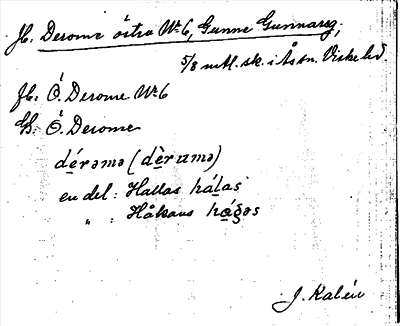 Jb. Derome östra Nr 6, Gunne Gunnarsg.,
5/8 mtl. sk. i Ås sn. Viske hd
Jb. Ö. Derome Nr 6
Gb. Ö. Derome
dérəmə (dèrumə)
en del: Hallas hálas
" : Håkans hágəs
J. Kalén